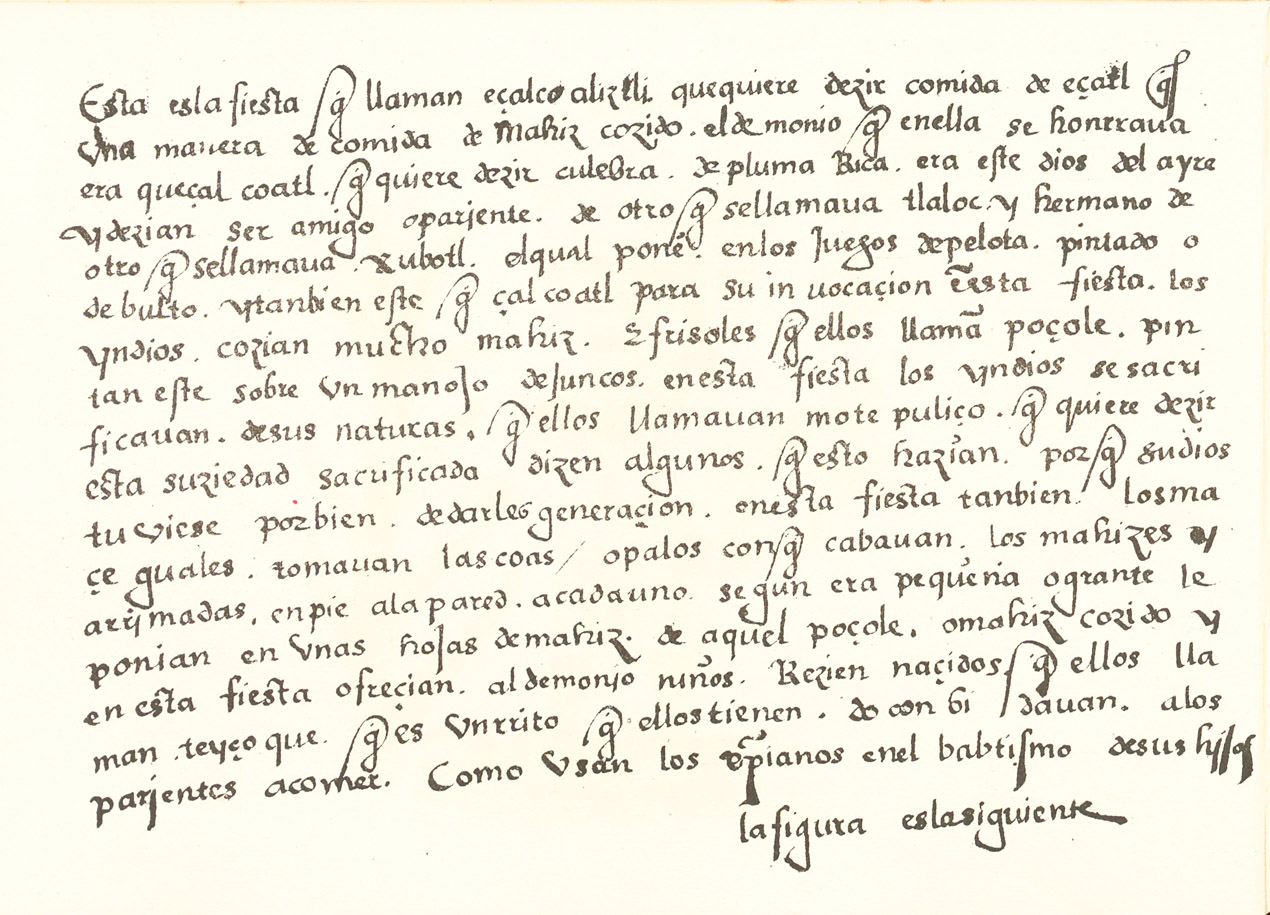 Esta esla fiesta q̃ llaman eçalcoaliztli quequiere dezir comida de eçatl q̃
Vna manera de comida de Mahiz cozido. el demonio q̃ enella se honrraua
era queçal coatl. q̃ quiere dezir culebra. de pluma Rica. era este dios del ayre
y dezian ser amigo o pariente. de otro q̃ sellamaua tlaloc. y hermano de
otro q̃ sellamaua. xubotl. elqual poné. enlos Juegos depelota. pintado o
de bulto. ytanbien este q̃ çal coatl para su in uocaçion esta fiesta. los
yndios. cozian mucho mahiz. E frisoles q̃ ellos llamã poçole. pin
tan este sobre vn manojo deJuncos. enesta fiesta los yndios se sacri
ficauan. desus naturas. q̃ ellos llamauan mote puliço. q̃ quiere dezir
esta suziedad sacrificada dizen algunos. q̃ esto hazian. porq̃ sudios
tuviese porbien. dedarles generaçion. enesta fiesta tanbien. losma
çe guales. tomauan las coas / opalos conq̃ cabauan. los mahizes y
arrimadas, enpie ala pared. acadauno segun era pequeña ogrante le
ponian en vnas hojas demahiz. de aquel poçole. omahiz cozido y
en esta fiesta ofreçian. aldemonio niños. Rezien naçidos q̃ ellos lla
man. teyçoque. q̃ es vnrrito q̃ ellostienen. do con bi dauan. alos
parientes acomer. Como vsan los xp̃ianos enel babtismo desus hijos
la figura eslasiguiente